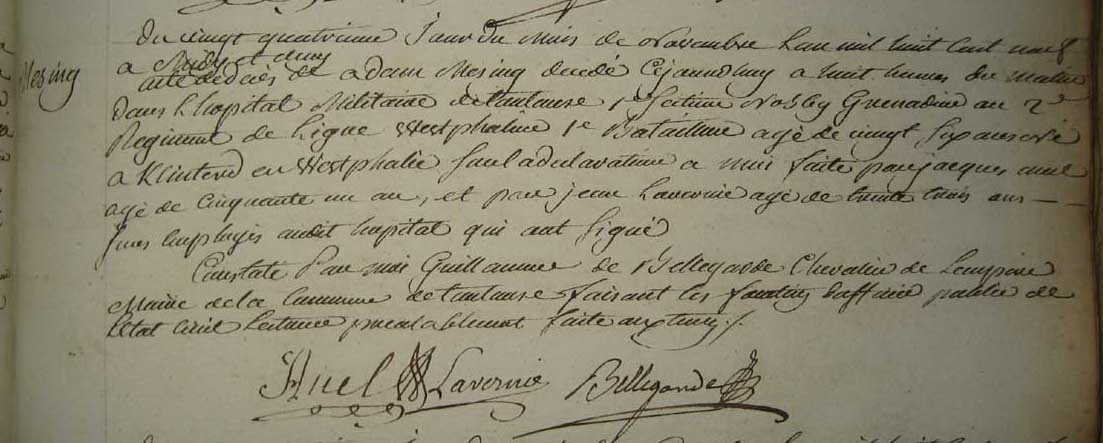 Mesing
Du vingt quatrieme Jour du Mois de Novembre L'an mil huit Cent neuf
a Midy et demy
acte de décès de adam Mesing decedé Cejourdhuy a huit heures du matin
dans L'hopital Militaire de toulouse 1re Section Grenadier au 2e
Regiment de Ligne Westphalien 1e Bataillon agé de vingt Six ans né
a en Westphalie Sur la declaration a moi faite par jacques
agé de Cinquante un an, et par jean Lavernie agé de trente trois ans
tous Employés audit hopital qui ont Signé
Constaté Par moi Guillaume de Bellegarde Chevalier de L'empire
Maire de la Commune de toulouse faisant les fonctions d'officier public de
l'état Civil Lecture prealablement faite aux temoins ./.
Huel Lavernie Bellegarde